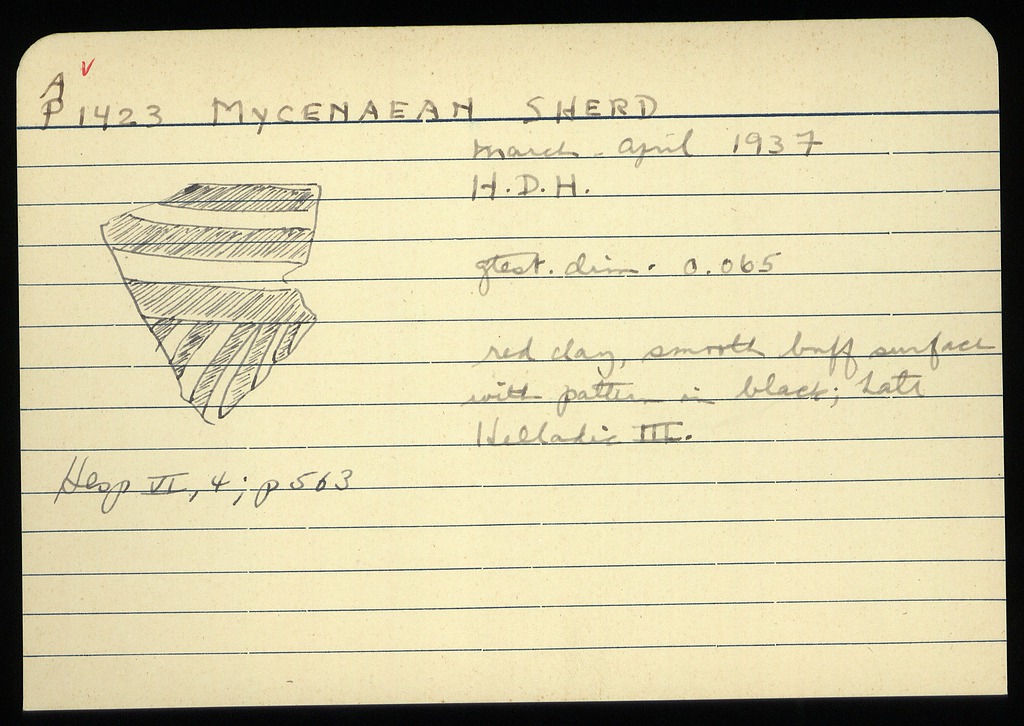 A
P 1423 MYCENAEAN SHERD
March - April 1937
H.D.H.
gtest. dim. 0.065
red clay, smooth buff surface
with pattern in black; Late
Helladic III.
Hesp VI, 4; p 563